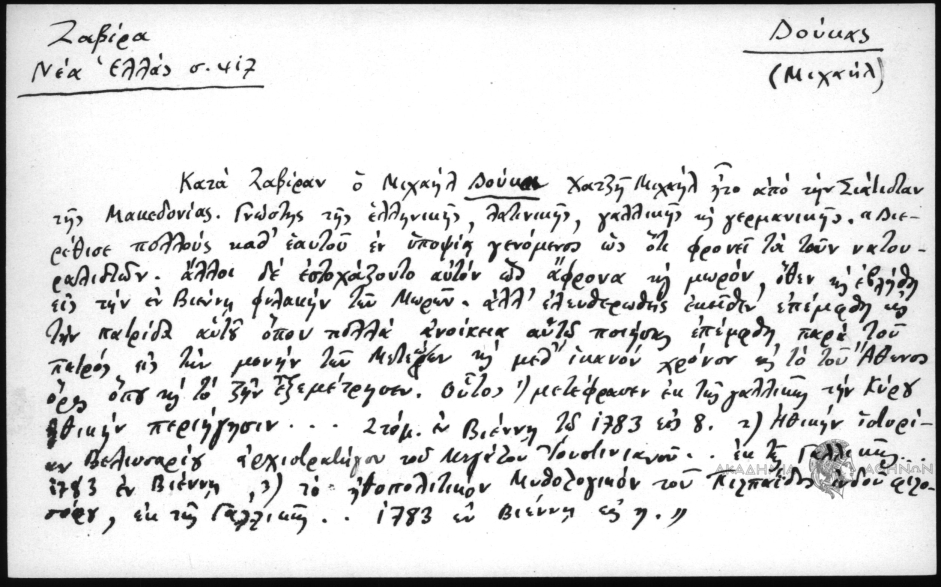 Ζαβίρα
Νέα Ἑλλάς σ. 417
Δούκας
(Μιχαήλ)
Κατὰ Ζαβίραν ὁ Μιχαὴλ Δούκα Χατζῆ Μιχαὴλ ἦτο ἀπὸ τὴν Σιάτισταν
τῆς Μακεδονίας. Γνώστης τῆς ἑλληνικῆς, λατινικῆς, γαλλικῆς κὴ γερμανικῆς. «Διε-
ρέθισε πολλοὺς καθ' ἑαυτοῦ ἐν ὑποψίᾳ γενόμενος ὡς ὅτι φρονεῖ τὰ τῶν νατου-
ραλιστῶν. ἄλλοι δὲ ἐστοχάζοντο αὐτὸν ὡς ἄφρονα κὴ μωρόν, ὅθεν κὴ ἐβλήθη
εἰς τὴν ἐν Βιέννῃ φυλακὴν τῶν Μωρῶν. ἀλλ' ἐλευθερωθεὶς ἐκεῖθεν ἐπέμφθη εἰς
τὴν πατρίδα αὐτοῦ ὅπου πολλὰ ἀνοίκεια αὐτῷ ποιήσας ἐπέμφθη παρὰ τοῦ
πατρὸς εἰς τὴν μονὴν τῶν Μετεώρων κὴ μεθ' ἱκανὸν χρόνον εἰς τὸ τοῦ Ἄθωνος
ὄρος ὅπου κὴ τὸ ζῆν ἐξεμέτρησεν. Οὗτος 1) μετέφρασεν ἐκ τῆς γαλλικῆς τὴν Κύρου
ἠθικὴν περιήγησιν . . . 2 τόμ. ἐν Βιέννῃ τῷ 1783 εἰς 8. 2) Ἠθικὴν ἱστορί-
αν Βελισαρίου ἀρχιστρατήγου τοῦ Μεγάλου Ἰουστινιανοῦ . . ἐκ τῆς Γαλλικῆς
1783 ἐν Βιέννῃ, 3) τὸ ἠθοπολιτικὸν Μυθολογικὸν τοῦ Πιλπάϊδος Ἰνδοῦ φιλο-
σόφου, ἐκ τῆς Γαλλικῆς . . 1783 ἐν Βιέννῃ εἰς η.»
ΑΚΑΔΗΜΙΑ ΑΘΗΝΩΝ